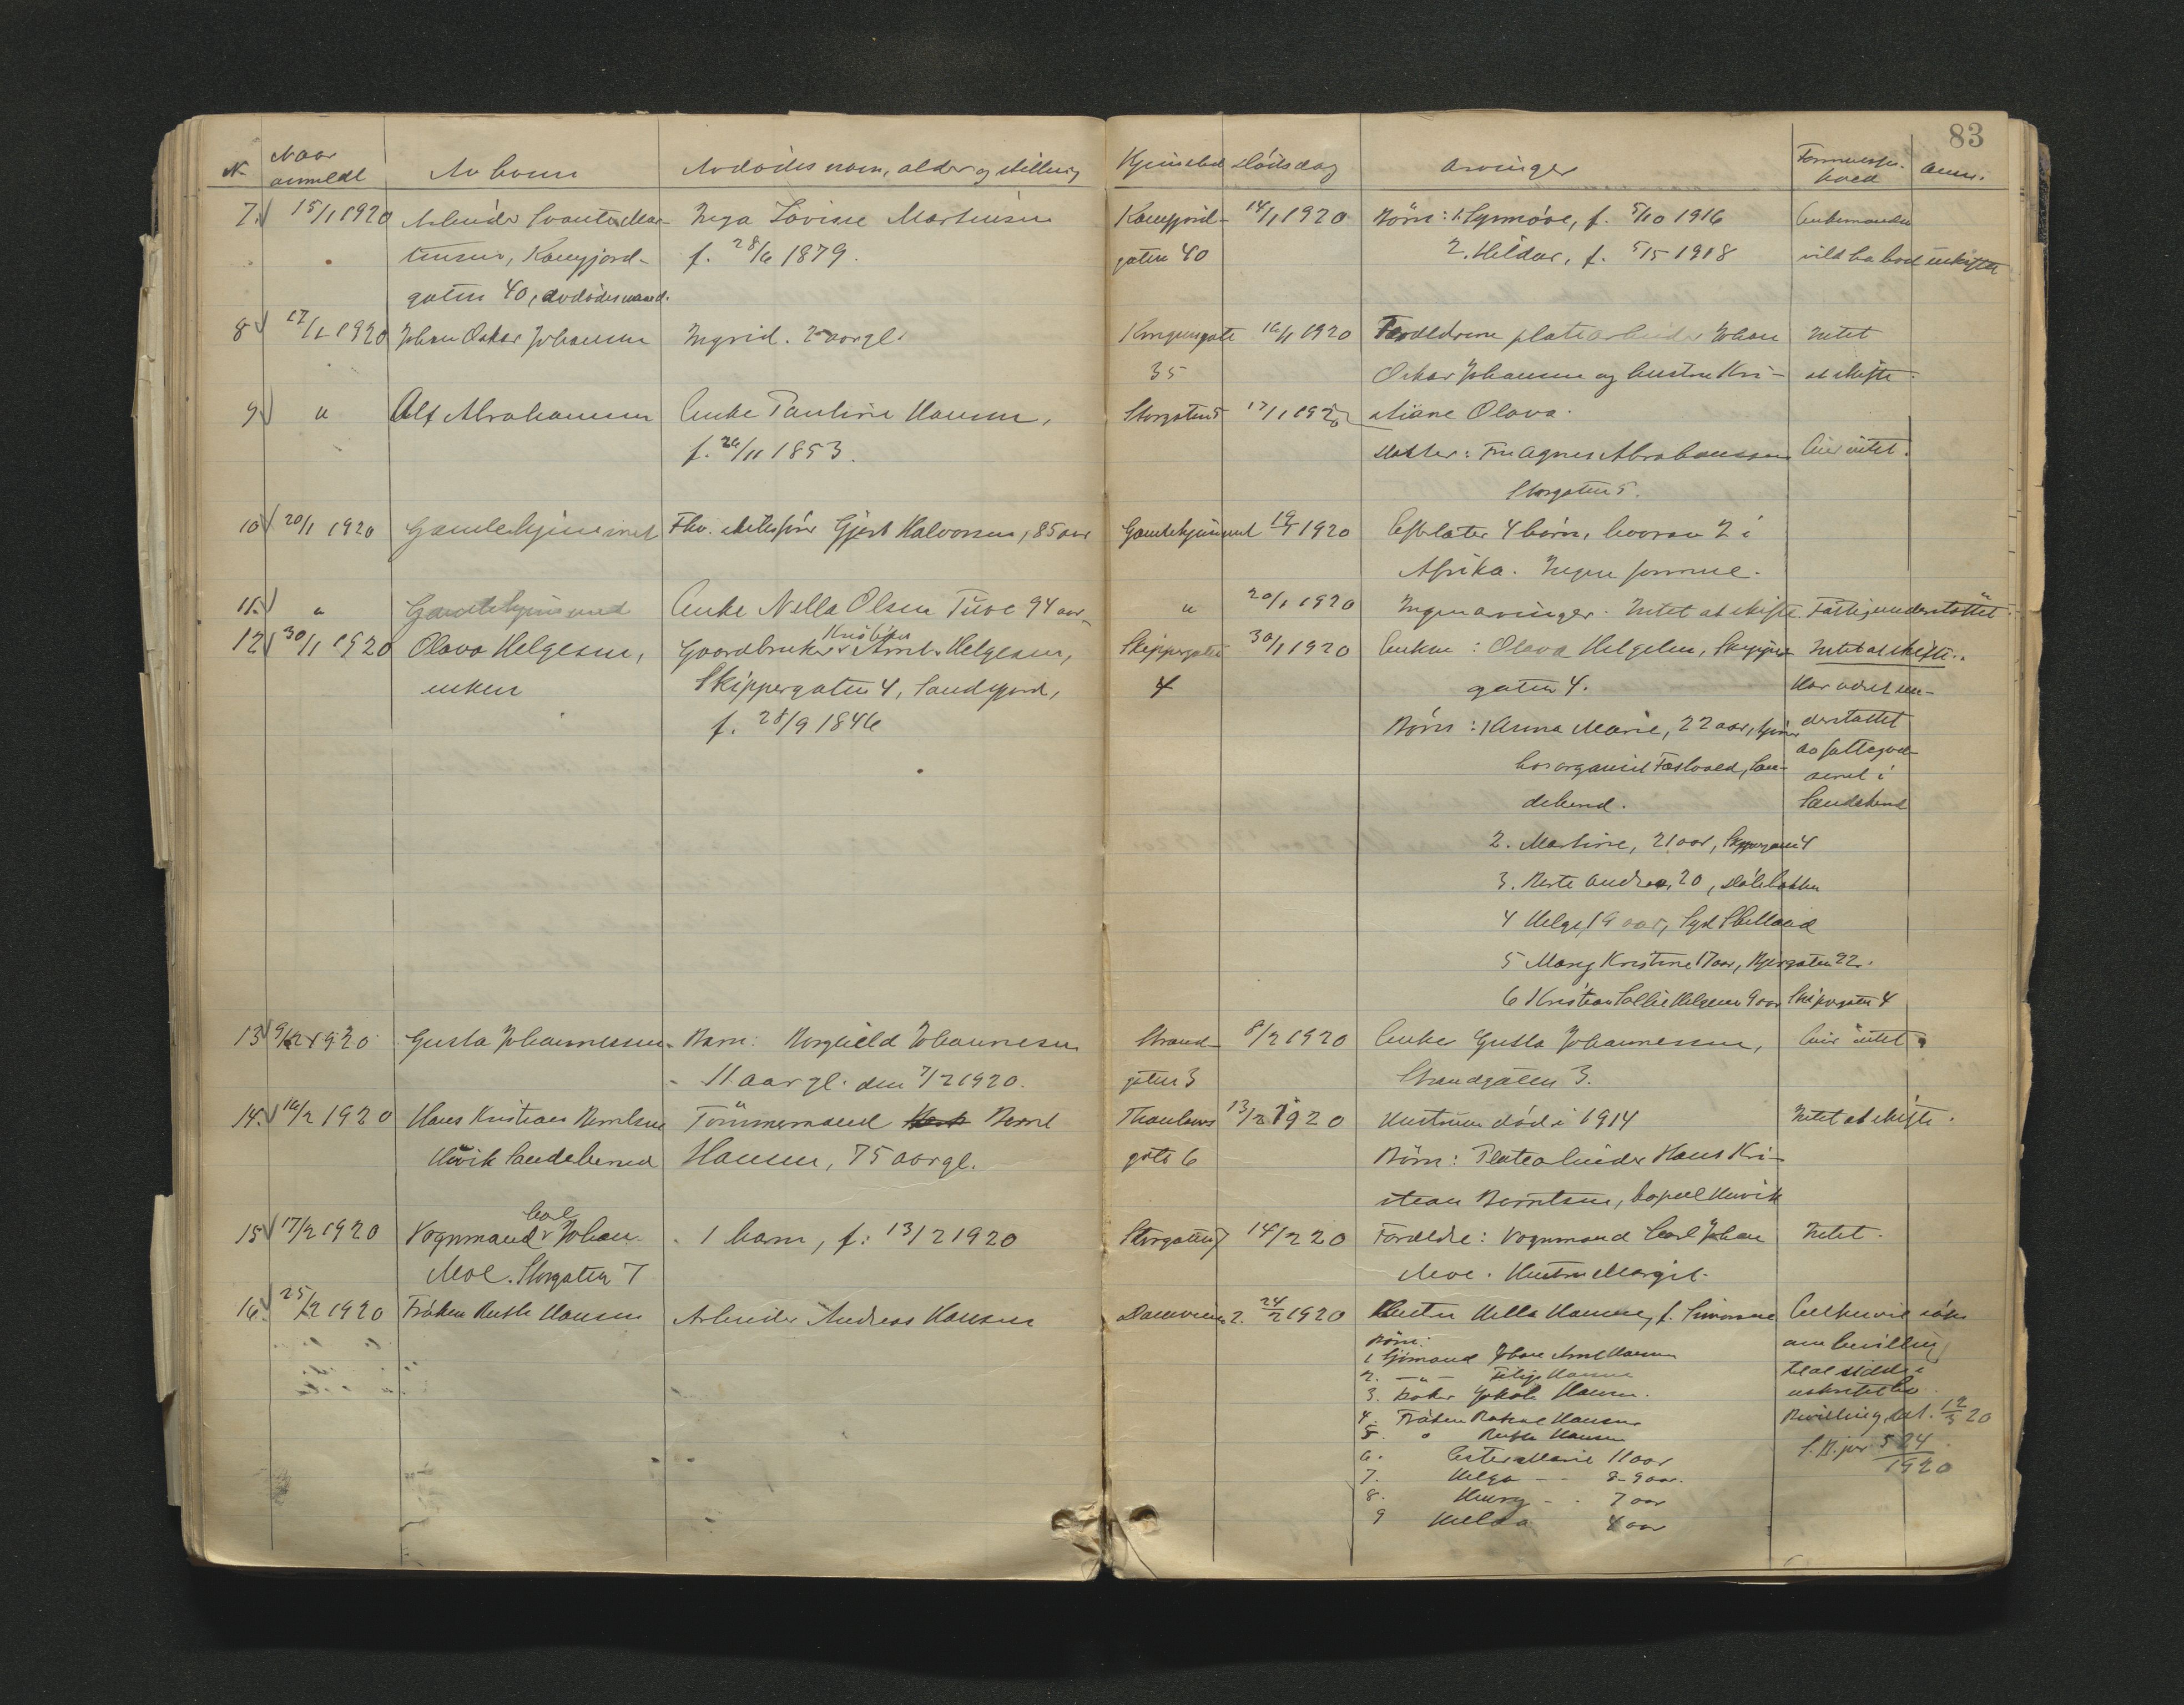 83
No Naar anmeldt Av hvem Avdødes navn, alder og stilling Hjemsted Dødsdag Arvinger Formuesforhold Anm.
7. 15/1 1920 Arbeider Mar- Inga Lovise Martinsen Kamfjord- 14/1 1920 Børn: 1. Synnøve, f. 5/10 1916 Enkemanden
tinsen, Kamfjord- f. 28/6 1879. gaten 40 2. Hildar, f. 5/5 1918 uskiftet
gaten 40, avdødes mand.
8 17/1 1920 Johan Oskar Johansen Ingrid. 2 aar gl. Kongensgate 16/1 1920 Forældrene platearbeider Johan Intet
35 Oskar Johansen og hustru Kri- at skifte.
9 " Alf Abrahamsen Enke Pauline Hansen, Storgaten 5 17/1 1920 stiane Olava.
f. 26/11 1853. Datter: Fru Agnes Abrahamsen Eier intet.
Storgaten 5.
10 20/1 1920 Gamlehjemmet Fhv. Gjert Halvorsen, 85 aar Gamlehjemmet 19/1 1920 Efterlater 4 børn, hvorav 2 i
Afrika. Ingen formue.
11. " Gamlehjemmet Enke Nella Olsen Tuve 94 aar " 20/1 1920 Ingen arvinger. Intet at skifte. Fattigunderstøttet.
12 30/1 1920 Olava Helgesen, Gaardbruker Kristian Helgesen, Skippergaten 30/1 1920 Enken: Olava Helgesen, Skipper- Intet at skifte.
enken Skippergaten 4, Sandefjord, 4 gaten 4. Har været un-
f. 28/9 1846 Børn: 1 Anna Marie, 22 aar, derstøttet
hos organist Fastvold, San- av fattigvæ-
deherred. senet i
Sandeherred
2. Martine, 21 aar, Skippergaten 4
3. Berte Andrea, 20,
4 Helge, 19 aar, Syd Shetland
5 Mary Kristine 17 aar, Bjergaten 22.
6 Kristian 9 aar Skippergaten 4
13 9/2 1920 Gusta Johannessen Barn: Borghild Johannesen Strand- 8/2 1920 Enke Gusta Johannessen, Eier intet
11 aar gl. den 7/2 1920. gaten 3 Strandgaten 3.
14. 16/2 1920 Hans Kristian Berntsen Tømmermand Bernt Thaulows 13/2 1920 Hustruen død i 1914 Intet at skifte.
Huvik Sandeherred Hansen, 75 aar gl. gate 6 Børn: Platearbeider Hans Kri-
stian Berntsen, bopæl Huvik
15 17/2 1920 Vognmand Carl Johan 1 barn, f. 13/2 1920 Storgaten 7 14/2 20 Forældre: Vognmand Carl Johan Intet.
Moe. Storgaten 7 Moe. Hustru Margit.
16. 25/2 1920 Frøken Ruth Hansen Arbeider Andreas Hansen 2. 24/2 1920 Enken Hilla Hansen, f. Simonsen Enken vil søke
Børn: om bevilling
1 Sjømand Johan Hansen til at sidde i
2. — " — Filip Hansen uskiftet bo.
3. Baker Jakob Hansen. Bevilling dat. 12/3 20
4. Frøken Hansen
5. " Ruth Hansen 524/1920
6. Ester Marie 11 aar
7. Helga — 8-9 aar.
8. Henry — 7 aar
9 Hilda 4 aar